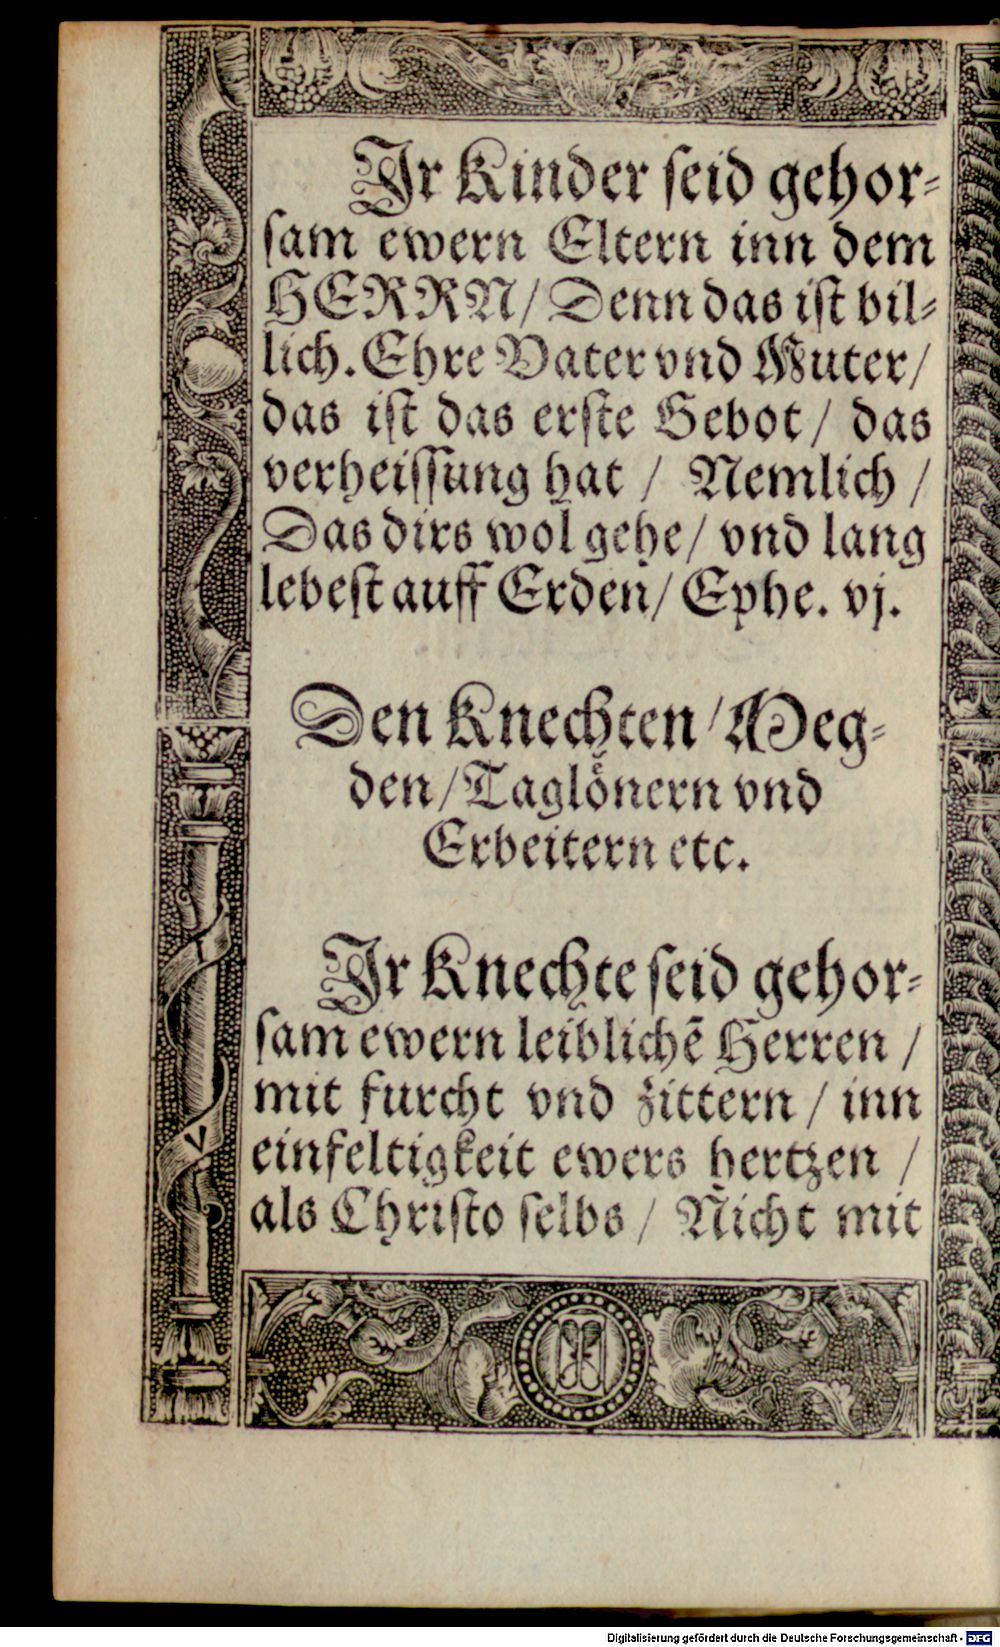 Jr Kinder ſeid gehor⸗
ſam ewern Eltern inn dem
HERRN/ Denn das iſt bil⸗
lich. Ehre Vater vnd Muter/
das iſt das erſte Gebot/ das
verheiſſung hat / Nemlich /
Das dirs wol gehe/ vnd lang
lebeſt auff Erden/ Ephe. vj.
Den Knechten/ Meg⸗
den/ Tagloͤnern vnd
Erbeitern etc.
Jr Knechte ſeid gehor⸗
ſam ewern leiblichē Herren /
mit furcht vnd zittern / inn
einfeltigkeit ewers hertzen /
als Chriſto ſelbs / Nicht mit
Digitalisierung gefördert durch die Deutsche Forschungsgemeinschaft - DFG